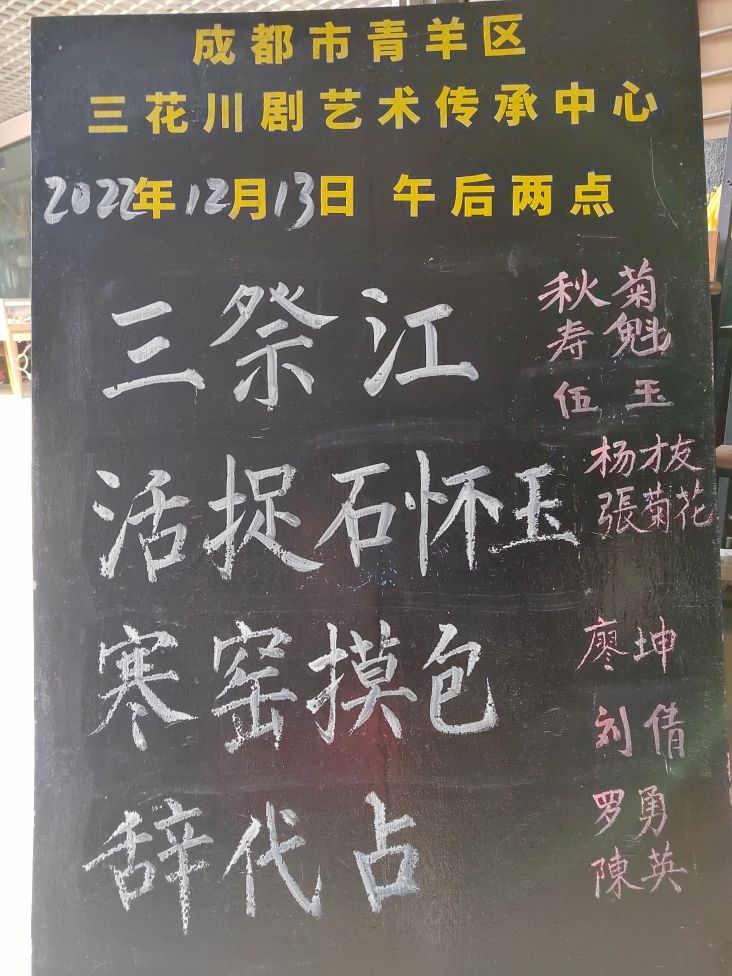 成都市青羊区
三花川剧艺术传承中心
2022年12月13日 午后两点
三祭江
秋菊
寿魁
伍玉
活捉石怀玉
杨才友
張菊花
寒窑摸包
廖坤
刘倩
辞代占
罗勇
陳英